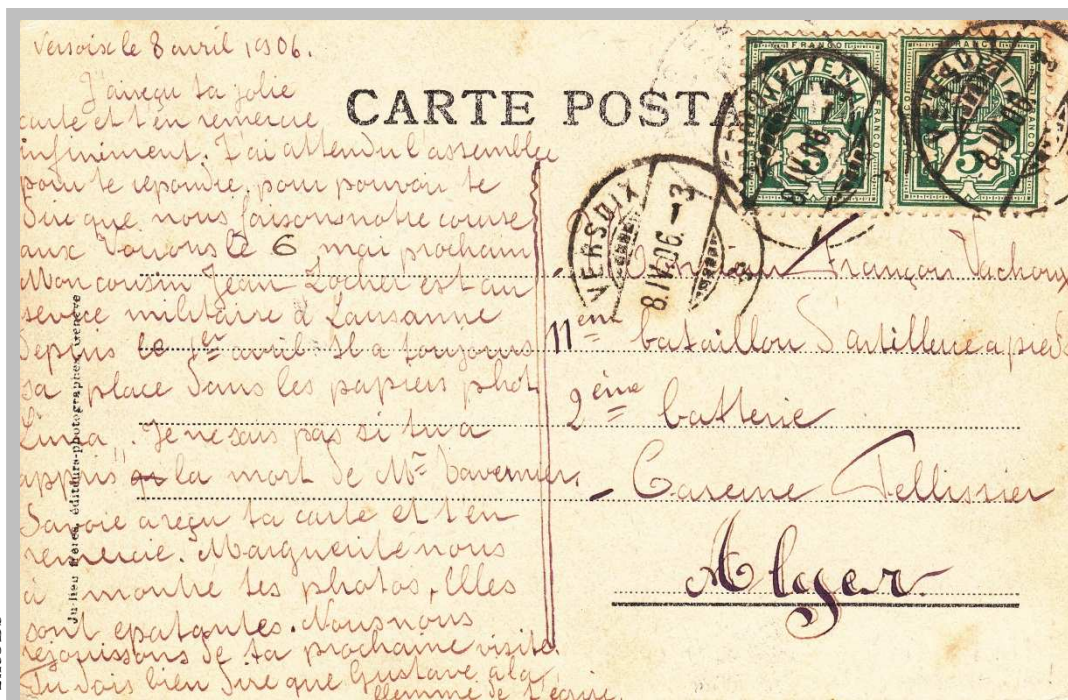 Versoix le 8 avril 1906.
J'ai reçu ta jolie
carte et t'en remercie
infiniment. J'ai attendu l'assemblée
pour te repondre, pour pouvoir te
dire que nous faison notre course
aux Voirons le 6 mai prochain
Mon cousin Jean Locher est au
service militaire à Lausanne
depuis le 1er avril Il a toujours
sa place dans les papiers phot
Luna. Je ne sais pas si tu a
appris la mort de Mr Tavernier.
Savoie a reçu ta carte et t'en
remercie. Marguerite nous
à montré tes photos, Elles
sont epatantes. Nous nous
rejouissons de ta prochaine visite.
Tu dois bien dire que Gustave a la
flemme de t'écrire.
Jullien frères, éditeurs-photographes, Genève
CARTE POSTA
FRANCO
5
FRANCO
5
VERSOIX
8.IV.06.-3
VERSOIX
8.IV.06
François Vachoux
11eme bataillon d'artillerie a pied
2ème batterie
Caserne Pellissier
Alger